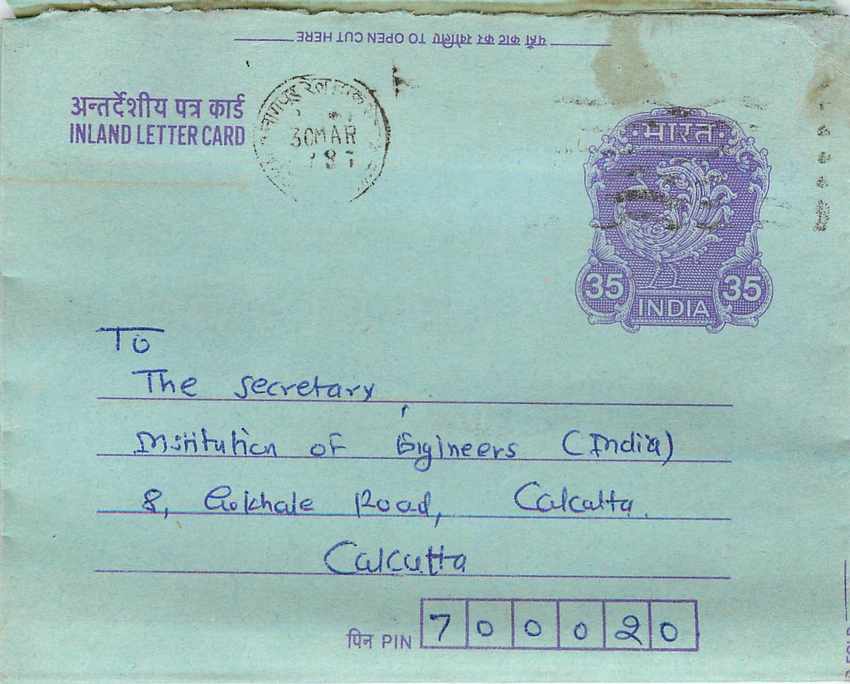 यहाँ काट कर खोलिए TO OPEN CUT HERE
अन्तर्देशीय पत्र कार्ड
INLAND LETTER CARD
30MAR
भारत
35 INDIA 35
To
The secretary,
Institution of Engineers (India)
8, Gokhale Road, Calcatta.
Calcutta
पिन PIN 700020